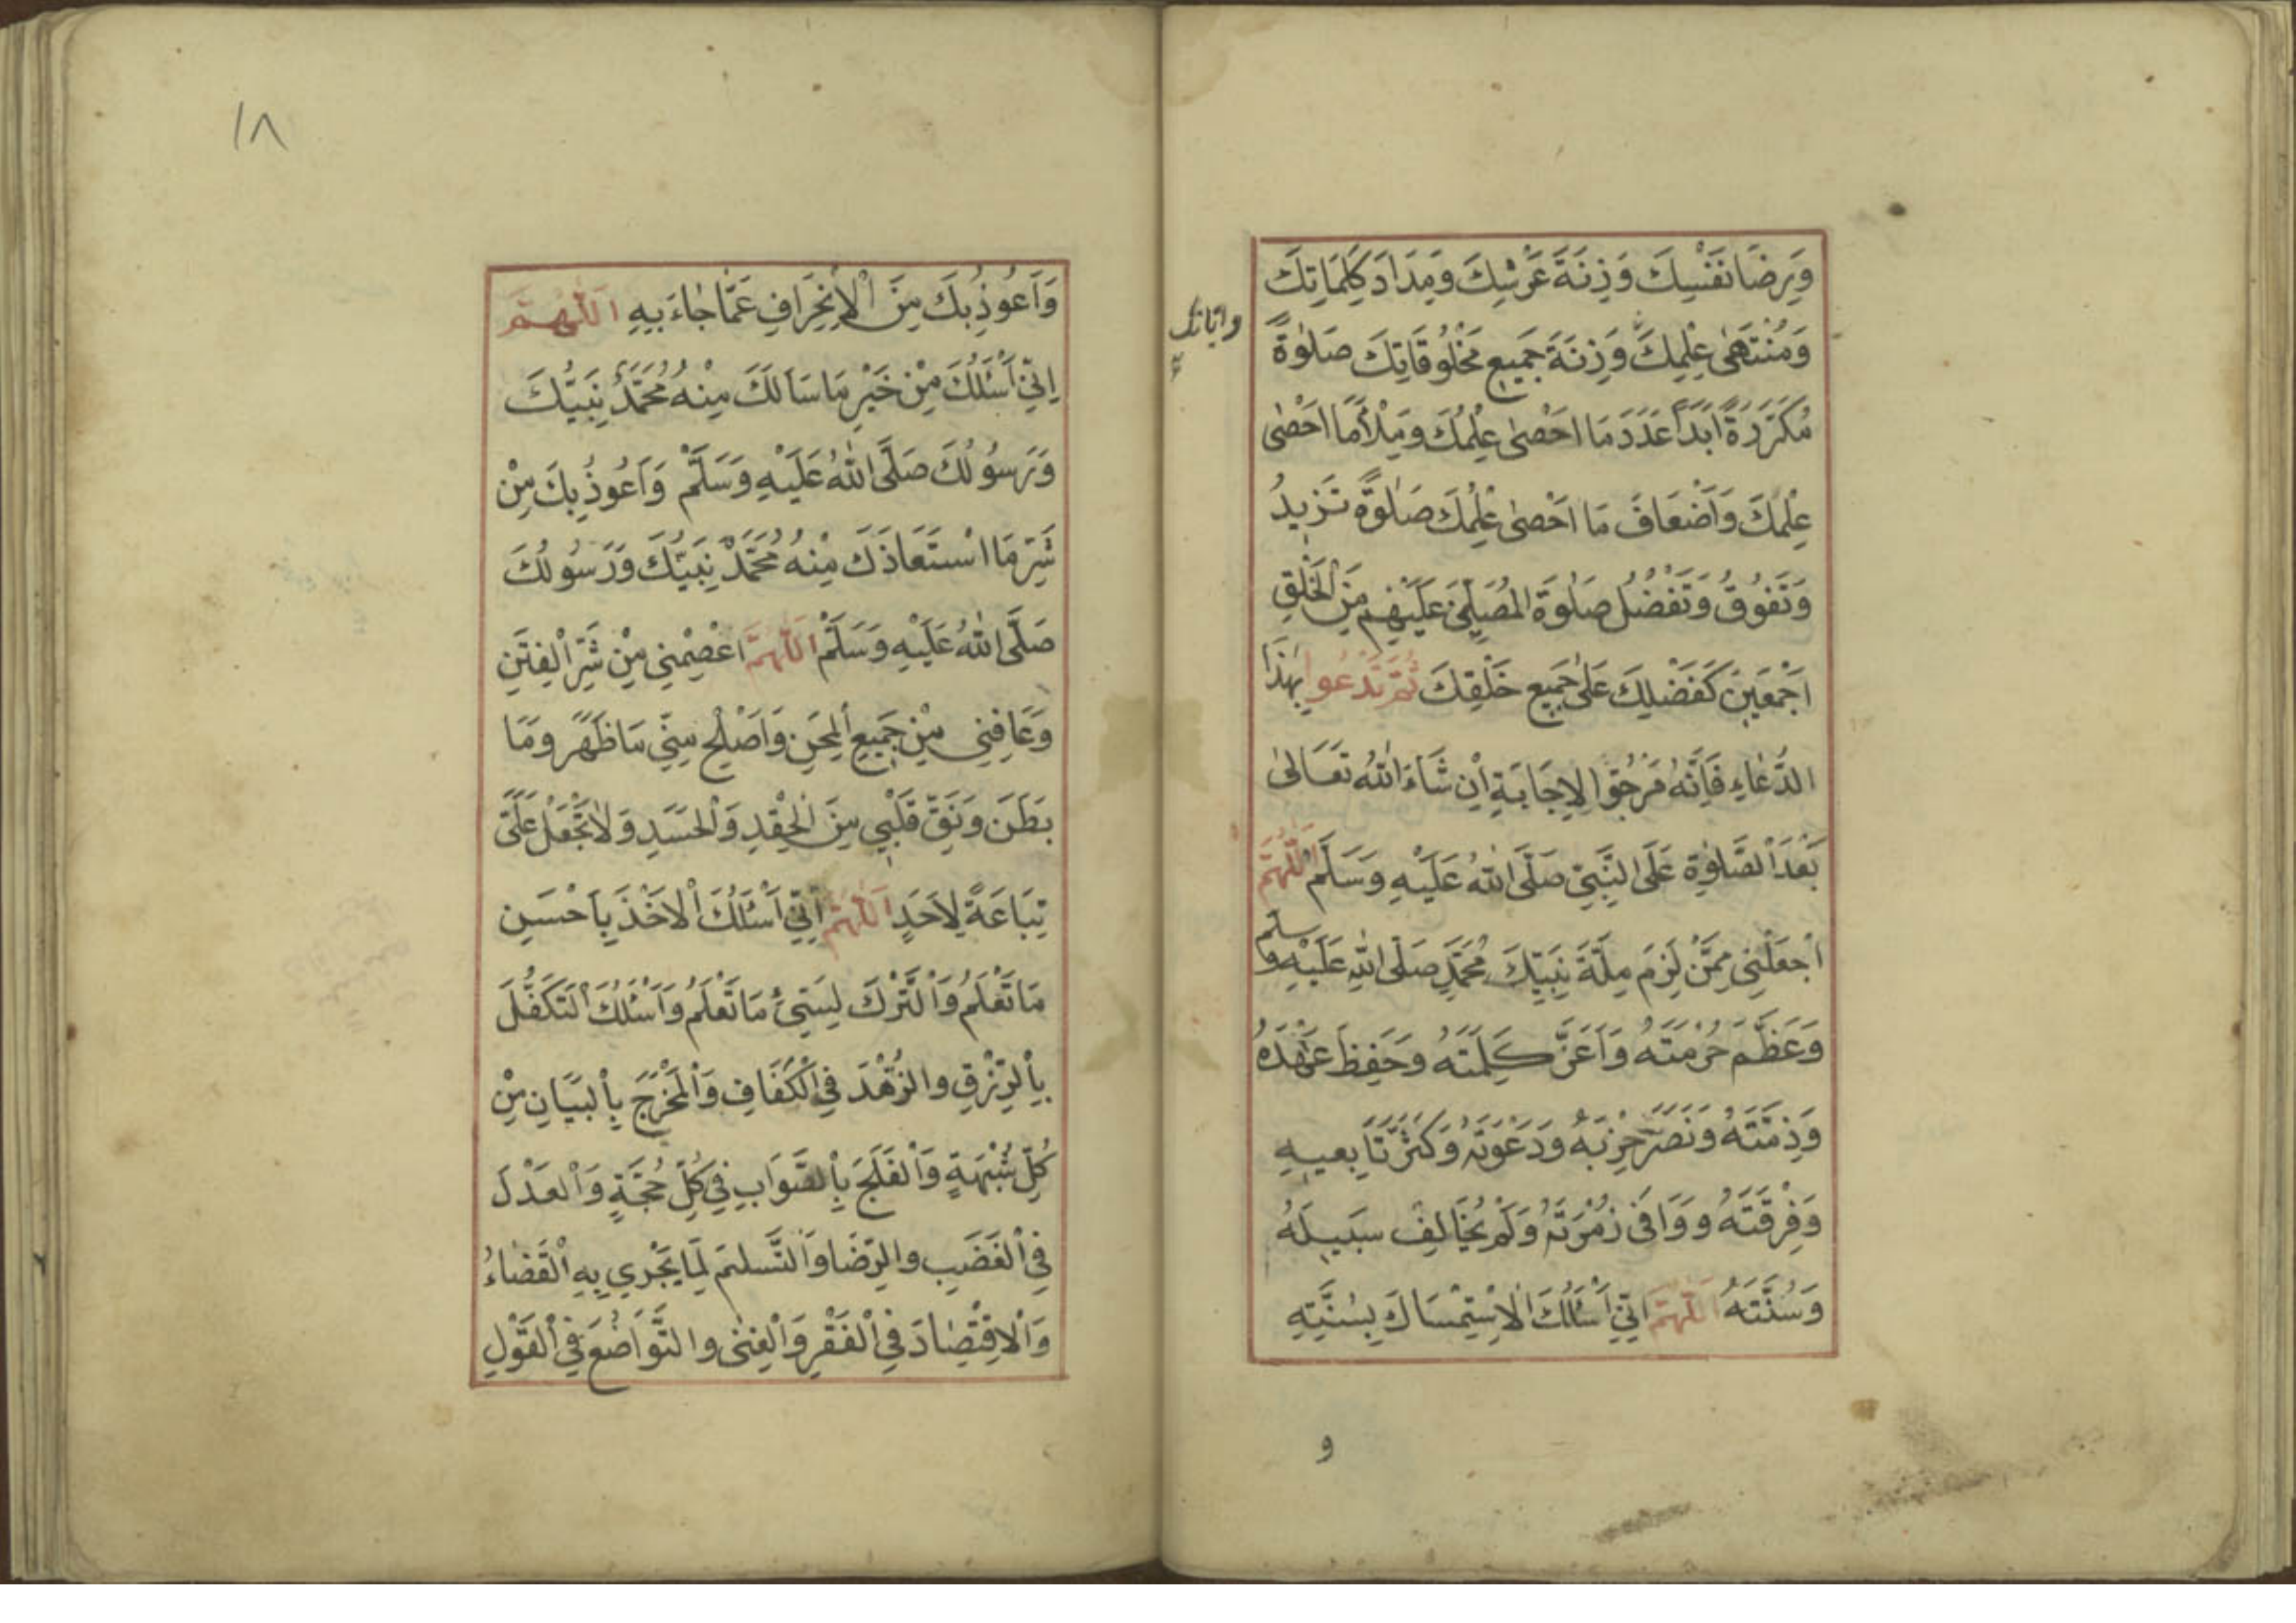 وَرِضَا نَفْسِكَ وَزِنَةَ عَرْشِكَ وَمِدَادَ كَلِمَاتِكَ
وَمُنْتَهَى عِلْمِكَ وَزِنَةَ جَمِيعِ مَخْلُوقَاتِكَ صَلٰوةً
مُكَرَّرَةً اَبَدًا عَدَدَ مَا اَحْصٰى عِلْمُكَ وَمِلْأَ مَا اَحْصٰى
عِلْمُكَ وَاَضْعَافَ مَا اَحْصٰى عِلْمُكَ صَلٰوةً تَزِيدُ
وَتَفُوقُ وَتَفْضُلُ صَلٰوةَ الْمُصَلِّينَ عَلَيْهِمْ مِنَ الْخَلْقِ
اَجْمَعِينَ كَفَضْلِكَ عَلٰى جَمِيعِ خَلْقِكَ ثُمَّ تَدْعُوا بِهٰذَا
الدُّعَاءِ فَاِنَّهُ مَرْجُوّا لْاِجَابَةِ اِنْ شَاءَ اللّٰهُ تَعَالٰى
بَعْدَ الصَّلٰوةِ عَلَى النَّبِيِّ صَلَّى اللّٰهُ عَلَيْهِ وَسَلَّمَ اَللّٰهُمَّ
اجْعَلْنِي مِمَّنْ لَزِمَ مِلَّةَ نَبِيِّكَ مُحَمَّدٍ صَلَّى اللّٰهِ عَلَيْهِ وسلم
وَعَظَّمَ حُرْمَتَهُ وَاَعَزَّ كَلِمَتَهُ وَحَفِظَ عَهْدَهُ
وَذِمَّتَهُ وَنَصَرَ حِزْبَهُ وَدَعْوَتَهُ وَكَثَّرَ تَابِعِيهِ
وَفِرْقَتَهُ وَوَافٰى زُمْرَتَهُ وَلَمْ يُخَالِفْ سَبِيلَهُ
وَسُنَّتَهُ اَللّٰهُمَّ اِنِّي اَسْئَلُكَ الْاِسْتِمْسَاكَ بِسُنَّتِهِ
و
١٨
وَاَعُوذُ بِكَ مِنَ الْاِنْحِرَافِ عَمَّا جَاءَ بِهِ اَللّٰهُمَّ
اِنِّي اَسْئَلُكَ مِنْ خَيْرِ مَا سَاَلَكَ مِنْهُ مُحَمَّدٌ نَبِيُّكَ
وَرَسُولُكَ صَلَّى اللّٰهُ عَلَيْهِ وَسَلَّمَ وَاَعُوذُ بِكَ مِنْ
شَرِّ مَا اسْتَعَاذَكَ مِنْهُ مُحَمَّدٌ نَبِيُّكَ وَرَسُولُكَ
صَلَّى اللّٰهُ عَلَيْهِ وَسَلَّمْ اَللّٰهُمَّ اعْصِمْنِي مِنْ شَرِّ الْفِتَنِ
وَعَافِنِي مِنْ جَمِيعِ الْمِحَنِ وَاَصْلِحْ مِنِّي مَا ظَهَرَ وَمَا
بَطَنَ وَنَقِّ قَلْبِي مِنَ الْحِقْدِ وَالْحَسَدِ وَلَا تَجْعَلْ عَلَيَّ
تِبَاعَةً لِاَحَدٍ اَللّٰهُمَّ اِنِّي اَسْئَلُكَ الْاَخْذَ بِاَحْسَنِ
مَا تَعْلَمُ وَالتَّرْكَ لِسَيِّئِ مَا تَعْلَمُ وَاَسْئَلُكَ التَّكَفُّلَ
بِالرِّزْقِ وَالزُّهْدَ فِي الْكَفَافِ وَالْمَخْرَجَ بِالْبَيَانِ مِنْ
كُلِّ شُبْهَةٍ وَالْفَلَجَ بِالصَّوَابِ فِي كُلِّ حُجَّةٍ وَالْعَدْلَ
فِي الْغَضَبِ وَالرِّضَا وَالتَّسْلِمَ لِمَا يَجْرِي بِهِ الْقَضَاءُ
وَالْاِقْتِصَادَ فِي الْفَقْرِ وَالْغِنٰى وَالتَّوَاضُعَ فِي الْقَوْلِ